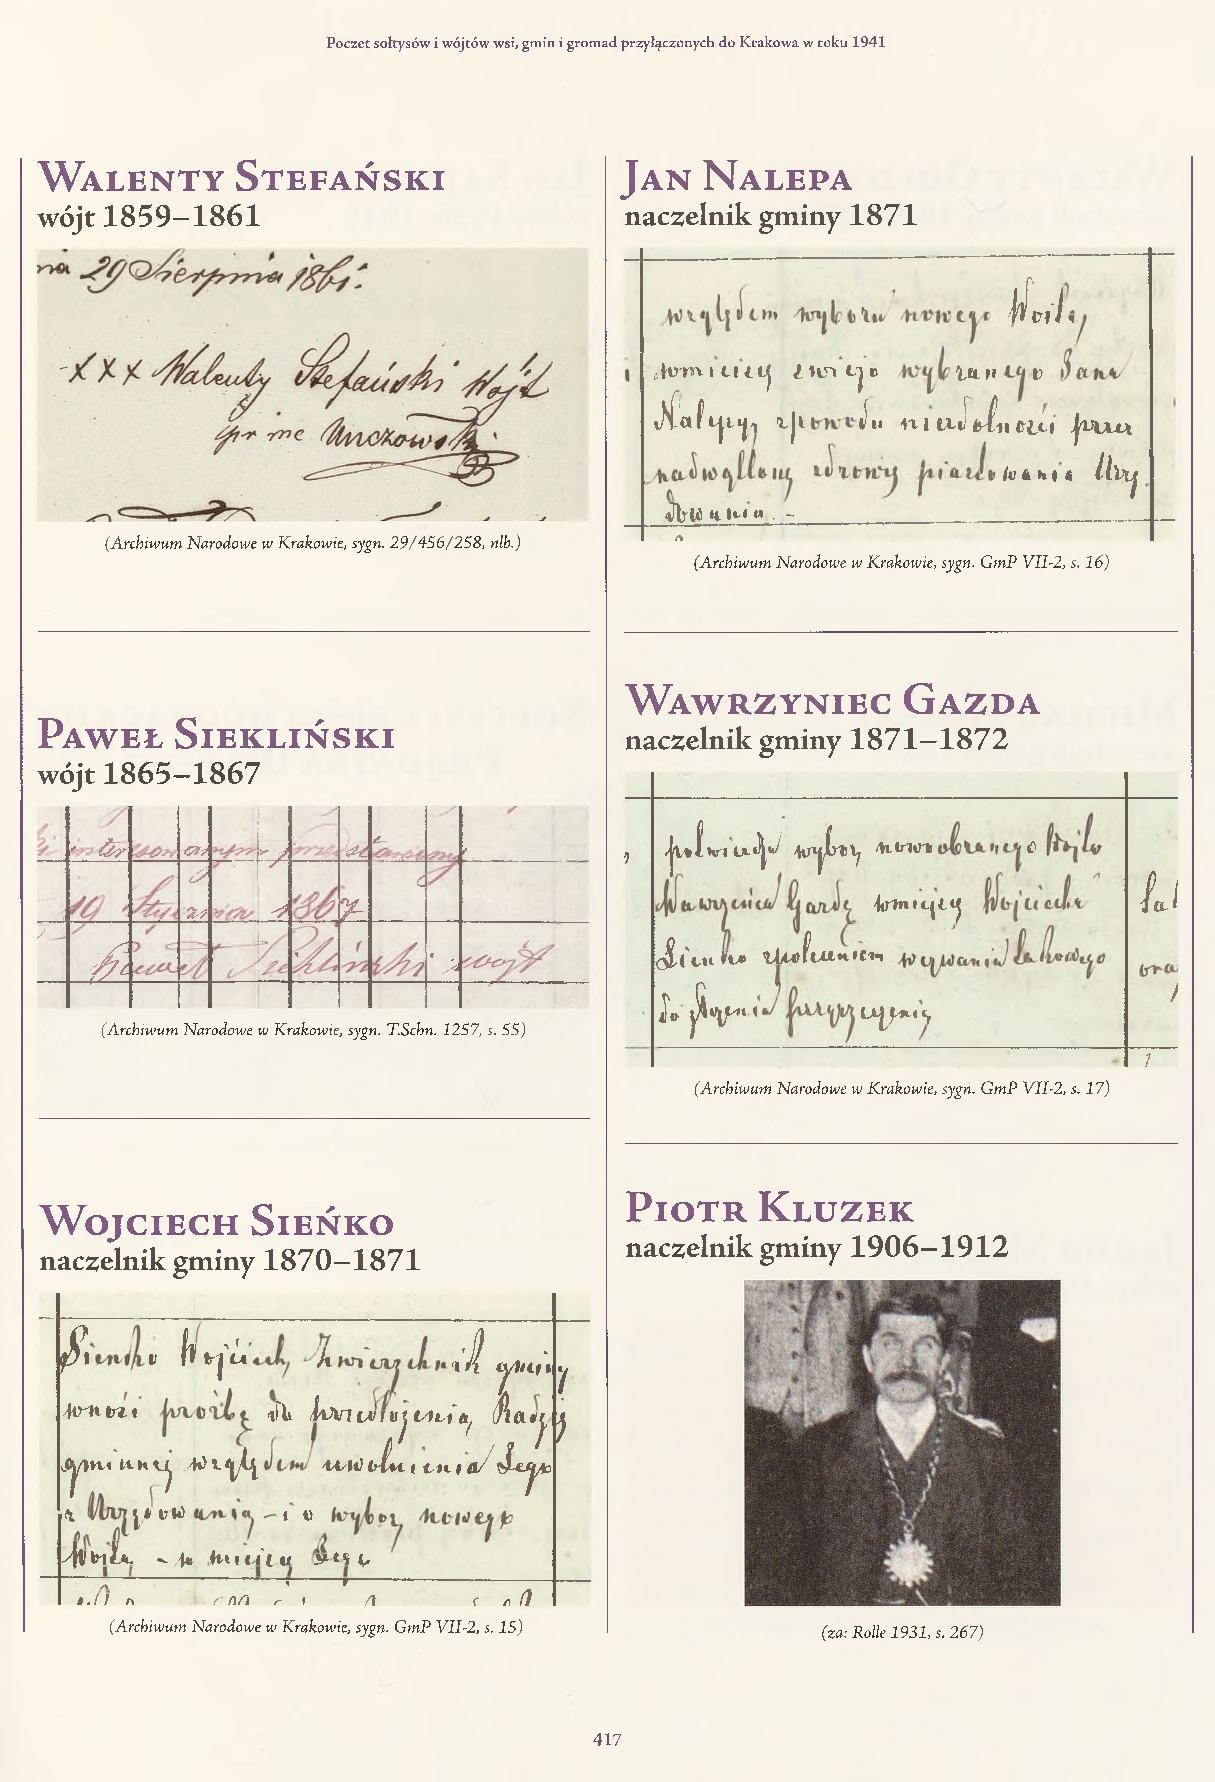 Poczet sołtysów i wójtów wsi, gmin i gromad przyłączonych do Krakowa w roku 1941
Walenty Stefański
wójt 1859–1861
29 Sierpnia 1861.
xxx Walenty Stefański Wójt
(Archiwum Narodowe w Krakowie, sygn. 29/456/258, nlb.)
Paweł Siekliński
wójt 1865–1867
interesowanym przedstawiony
19 Stycznia 1867
Paweł Siekliński wójt
(Archiwum Narodowe w Krakowie, sygn. T.Schn. 1257, s. 55)
Wojciech Sieńko
naczelnik gminy 1870–1871
Sieńko Wojciech, Zwierzchnik gminy
wnosi prośbę do przedłożenia, Radzie
gminnej względem uwolnienia Jego
z Urzędowania – i o wybor nowego
Wojta, – w miejscu Jego
(Archiwum Narodowe w Krakowie, sygn. GmP VII-2, s. 15)
Jan Nalepa
naczelnik gminy 1871
względem wyboru nowego Wojta,
wmiejscu wybranego Jana
Nalepy, zpowodu niezdolności przez
nadwątlony zdrowy piastowania Urzę
dowania –
(Archiwum Narodowe w Krakowie, sygn. GmP VII-2, s. 16)
Wawrzyniec Gazda
naczelnik gminy 1871–1872
potwierdza wybor nowoobranego Wojta
Wawrzeńca Gazdę wmiejscu Wojciecha
Sieńko zpoleceniem wezwania takowego
do złożenia przyrzeczenia
(Archiwum Narodowe w Krakowie, sygn. GmP VII-2, s. 17)
Piotr Kluzek
naczelnik gminy 1906–1912
(za: Rolle 1931, s. 267)
417